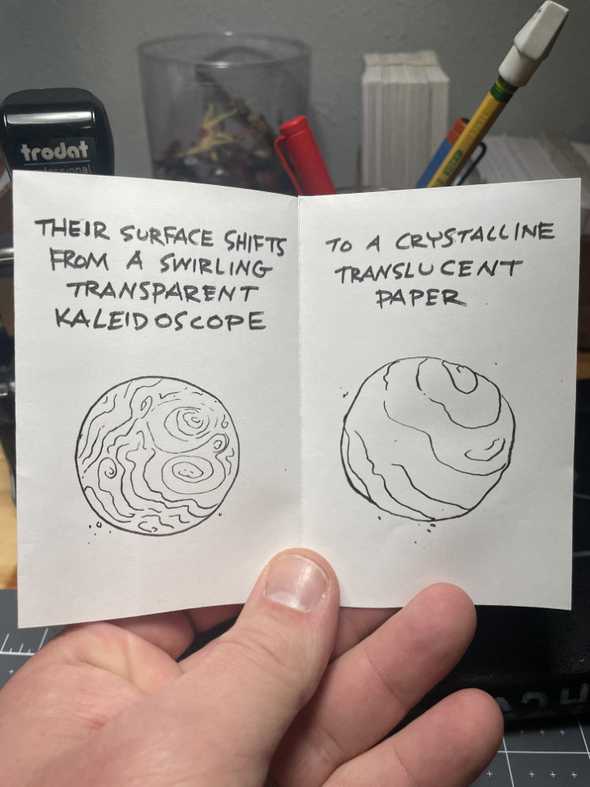 trodat
professional
THEIR SURFACE SHIFTS
FROM A SWIRLING
TRANSPARENT
KALEIDOSCOPE
TO A CRYSTALLINE
TRANSLUCENT
PAPER